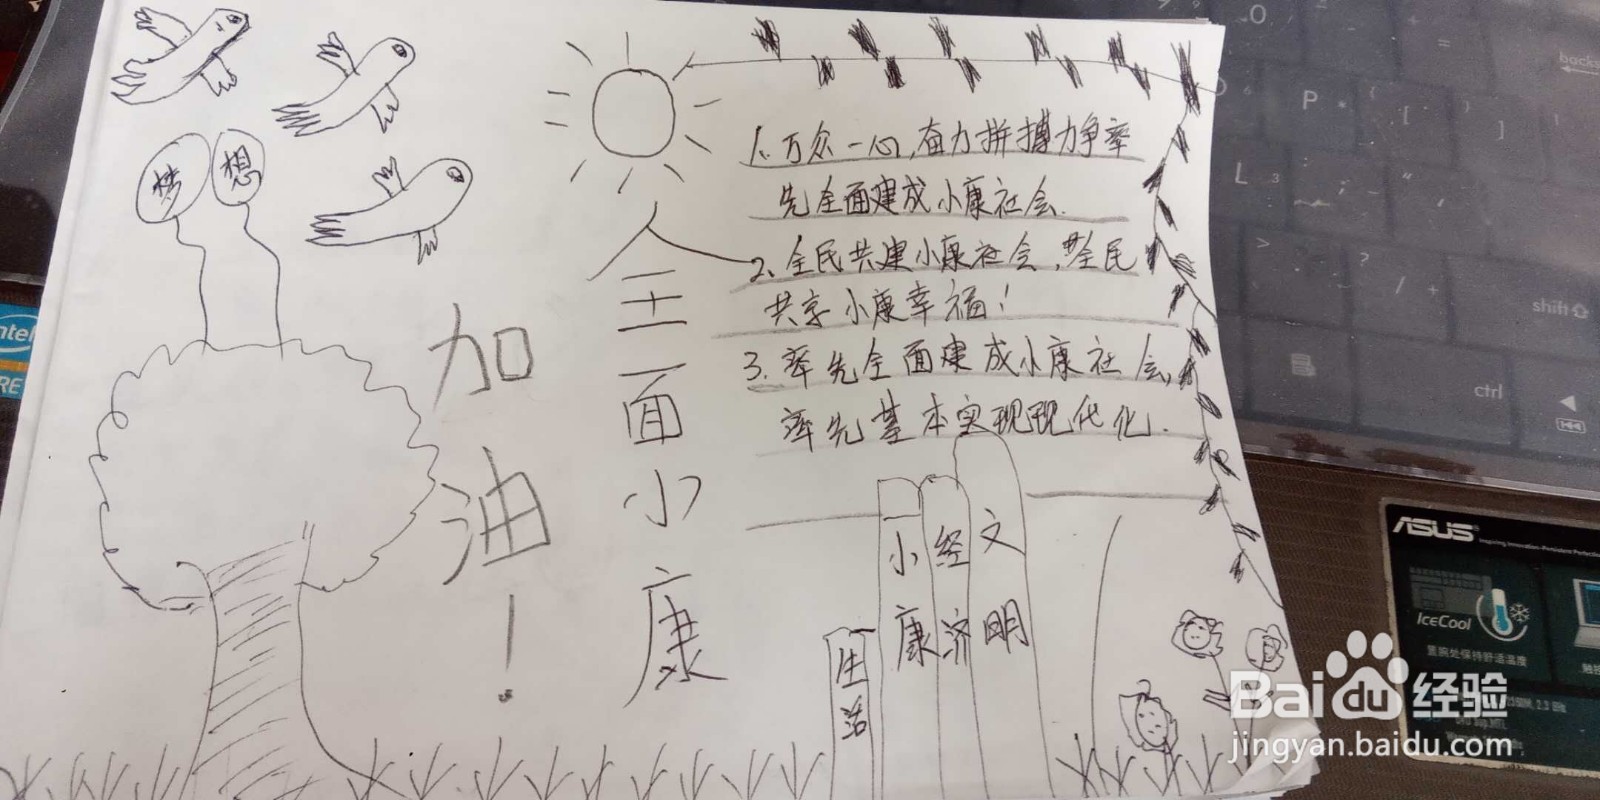 梦想
加油！
全面小康
1.万众一心,奋力拼搏力争率
先全面建成小康社会.
2.全民共建小康社会,全民
共享小康幸福！
3.率先全面建成小康社会,
率先基本实现现代化.
生活
小康
经济
文明
P
L
backs
shift
ctrl
intel
ASUS
Inspiring Innovation·Persistent Perfection
IceCool
置腕处保持舒适温度
Baidu经验
jingyan.baidu.com